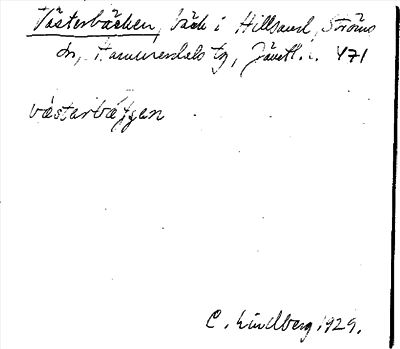 Västerbäcken, bäck i Hillsand, Ströms
sn, Hammerdals tg, Jämtl. l. 471
västarbäȷȷen
C. Lindberg 1929.